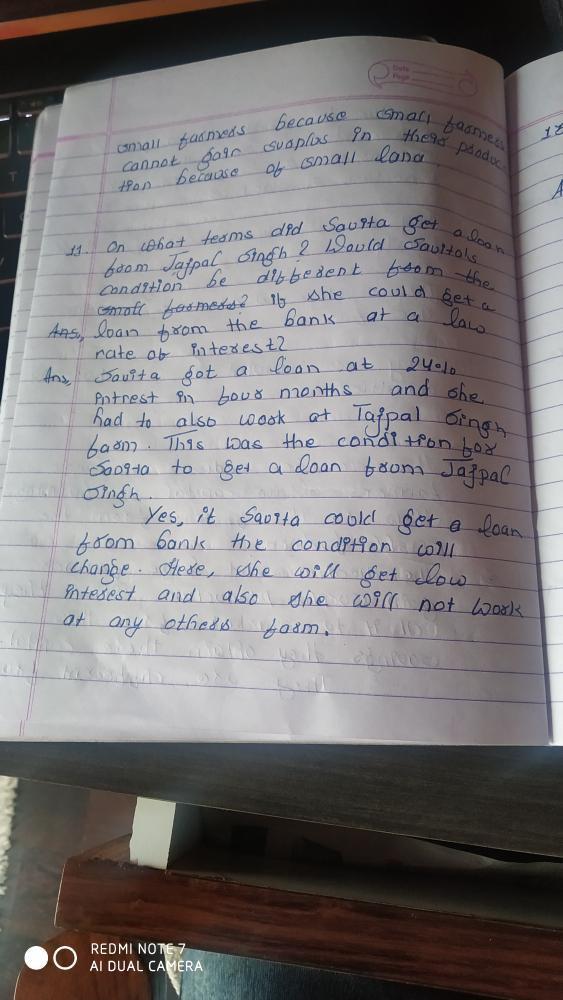 Date
Page
small farmers because small farmers
cannot gain suaplus in there produc
tion because of small land
11. On what terms did Savita get a loan
from Tajpal Singh? Would Savita's
condition be different from the
small farmers? if she could get a
Ans, loan from the bank at a low
rate of interest?
Ans, Savita got a loan at 24%
intrest in four months and she
had to also work at Tajpal Singh
farm. This was the condition for
Savita to get a loan from Tajpal
Singh.
Yes, if Savita could get a loan
from bank the condition will
change. Here, she will get low
interest and also she will not work
at any others farm.
REDMI NOTE 7
AI DUAL CAMERA